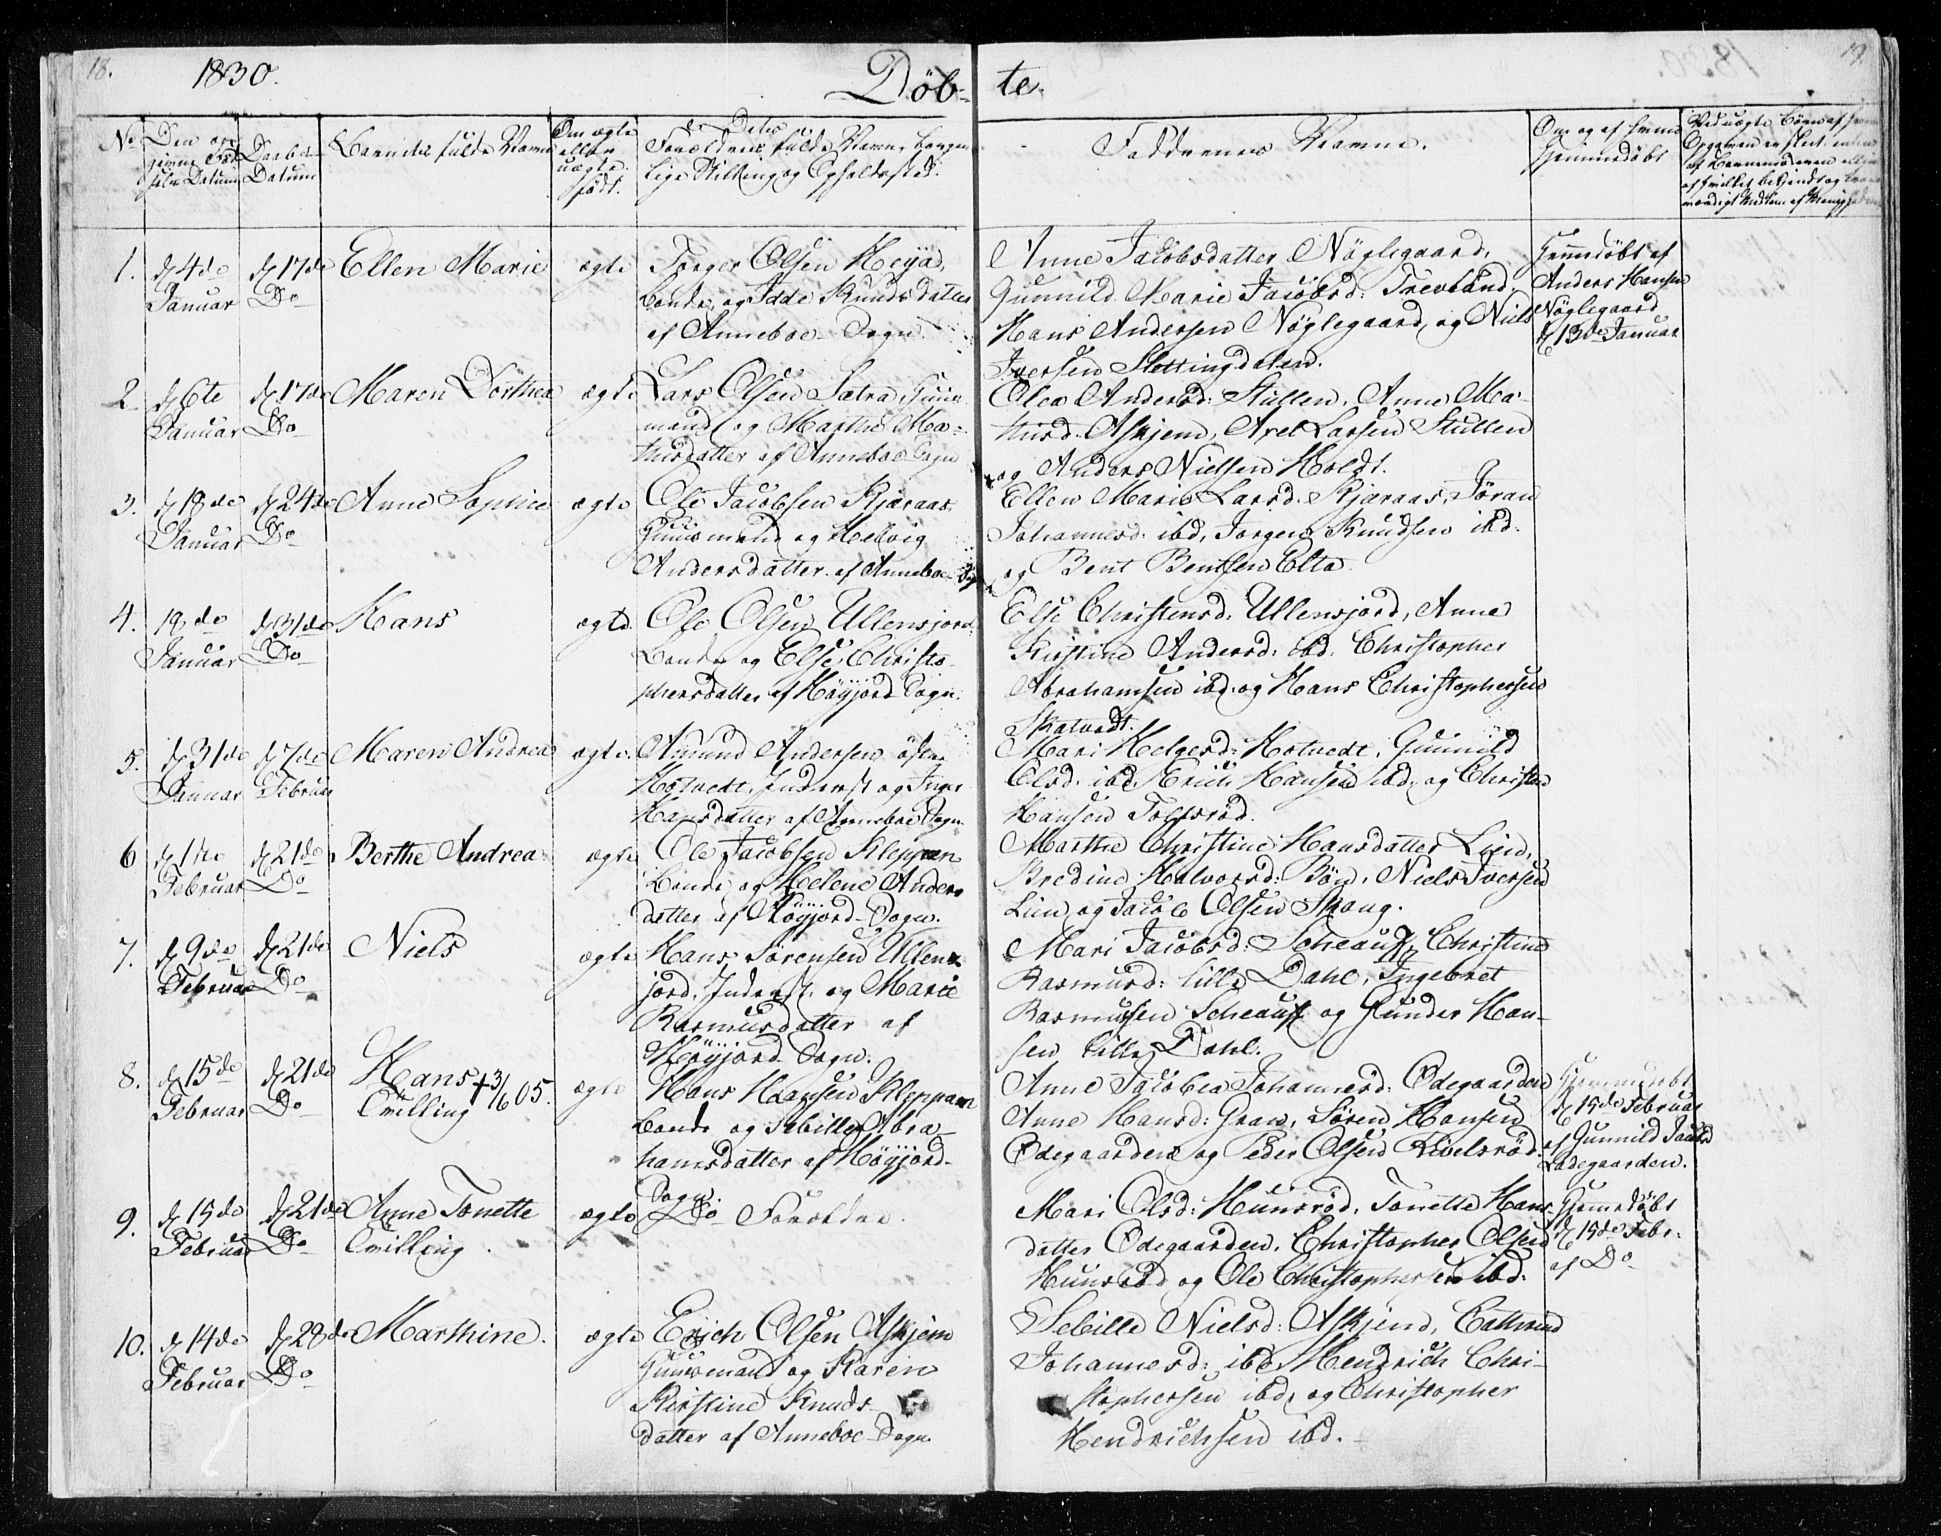 18.
1830.
Døb-
te.
19
No
Den op
givne Fød
sels Datum
Daabs
Datum
Barnets fulde Navn
Om ægte
eller
uægte
født.
Forældrenes fulde Navn, borger
lige Stilling og Opholdssted.
Faddernes Navne.
Om og af hvem
hjemmedøbt
1.
d 4de
Januar
d 17de
Do
Ellen Marie
ægte
Torger Olsen
bonde og Idde Knudsdatter
af Anneboe Sogn.
Anne Jacobsdatter Nøglegaard,
Gunnild Marie Jacobsd:
Hans Andersen Nøglegaard, og Niels
Iversen Slettingdalen.
Hjemdøbt af
Anders Hansen
Nøglegaard
d 13de Januar
2
d 6te
Januar
d 17de
Do
Maren Dorthea
ægte
Lars Olsen Sætra, Huus
mand og Marthe Ma-
thisdatter af Anneboe Sogn
Olea Andersd: Stullen, Anne Ma-
thisd: Askjem, Axel Larsen Stullen
og Anders Nielsen Holdt.
3.
d 18de
Januar
d 24de
Do
Anne Sophie
ægte
Ole Jacobsen Kjæraas
Huusmand og Helvig
Andersdatter af Anneboe Sogn
Ellen Marie Larsd: Kjæraas, Jøran
Johannesd: ibd, Jørgen Knudsen ibd:
og Bent Bentsen Elta.
4.
18de
Januar
d 31de
Do
Hans
ægte
Ole Olsen Ullensjord
Bonde og Else Christo-
phersdatter af Høyjord Sogn.
Else Christensd: Ullensjord, Anne
Kirstine Andersd: ibd. Christopher
Abrahamsen ibd: og Hans Christophersen
Skatvedt.
5.
d 31de
Januar
d 7de
Februar
Maren Andrea
ægte.
Amund Andersen østre
Hotvedt, Inderst og Inger
Hansdatter af Anneboe Sogn
Mari Helgesd: Hotvedt, Gunnild
Olsd: ibd, Erich Hansen ibd, og Christen
Hansen Tolsrød.
6
d 1ste
Februar
d 21de
Do
Berthe Andrea
ægte
Ole Jacobsen Kleppan
Bonde og Helene Anders
datter af Høyjord Sogn.
Marthe Christine Hansdatter Lien,
Bredine Halvorsd: Bøn, Niels Iversen
Lien og Jacob Olsen Skoug.
7.
d 9de
Februar
d 21de
Do
Niels
ægte
Hans Sørensen Ullens
jord, Inderst, og Marie
Rasmusdatter af
Høyjord Sogn.
Mari Jacobsd: Scheauf, Christine
Rasmusd: lille Dahl, Ingebret
Rasmussen Scheauf og Gunder Han-
sen lille Dahl.
8.
d 15de
Februar
d 21de
Do
Hans
Tvilling
† 3/6 05.
ægte
Hans Hansen Kleppan
Bonde og Sebille Abra-
hamsdatter af Høyjord-
Sogn.
Anne Jacobea Johannesd: Ødegaarden
Anne Hansd: Gran, Søren Hansen
Ødegaarden og Peder Olsen
Hjemmedøbt
d 15de Februar
af Gunnild Jacobsd
Ladegaarden.
9.
d 15de
Februar
d 21de
Do
Anne Tonette
Tvilling
ægte
Do Forældre.
Mari Olsd: Hunsrød, Tonette Hans
datter Ødegaarden, Christopher Olsen
Hunsrød og Ole Christophersen ibd:
Hjemmedøbt
d 15de Febr.
af Do
10.
d 14de
Februar
d 28de
Do
Marthine.
ægte
Erich Olsen Askjem
Huusmand og Karen
Kirstine Knuds-
datter af Anneboe Sogn
Sebille Nielsd: Askjem, Cathrine
Johannesd: ibd, Hendrich Chri-
stophersen ibd, og Christopher
Hendrichsen ibd.